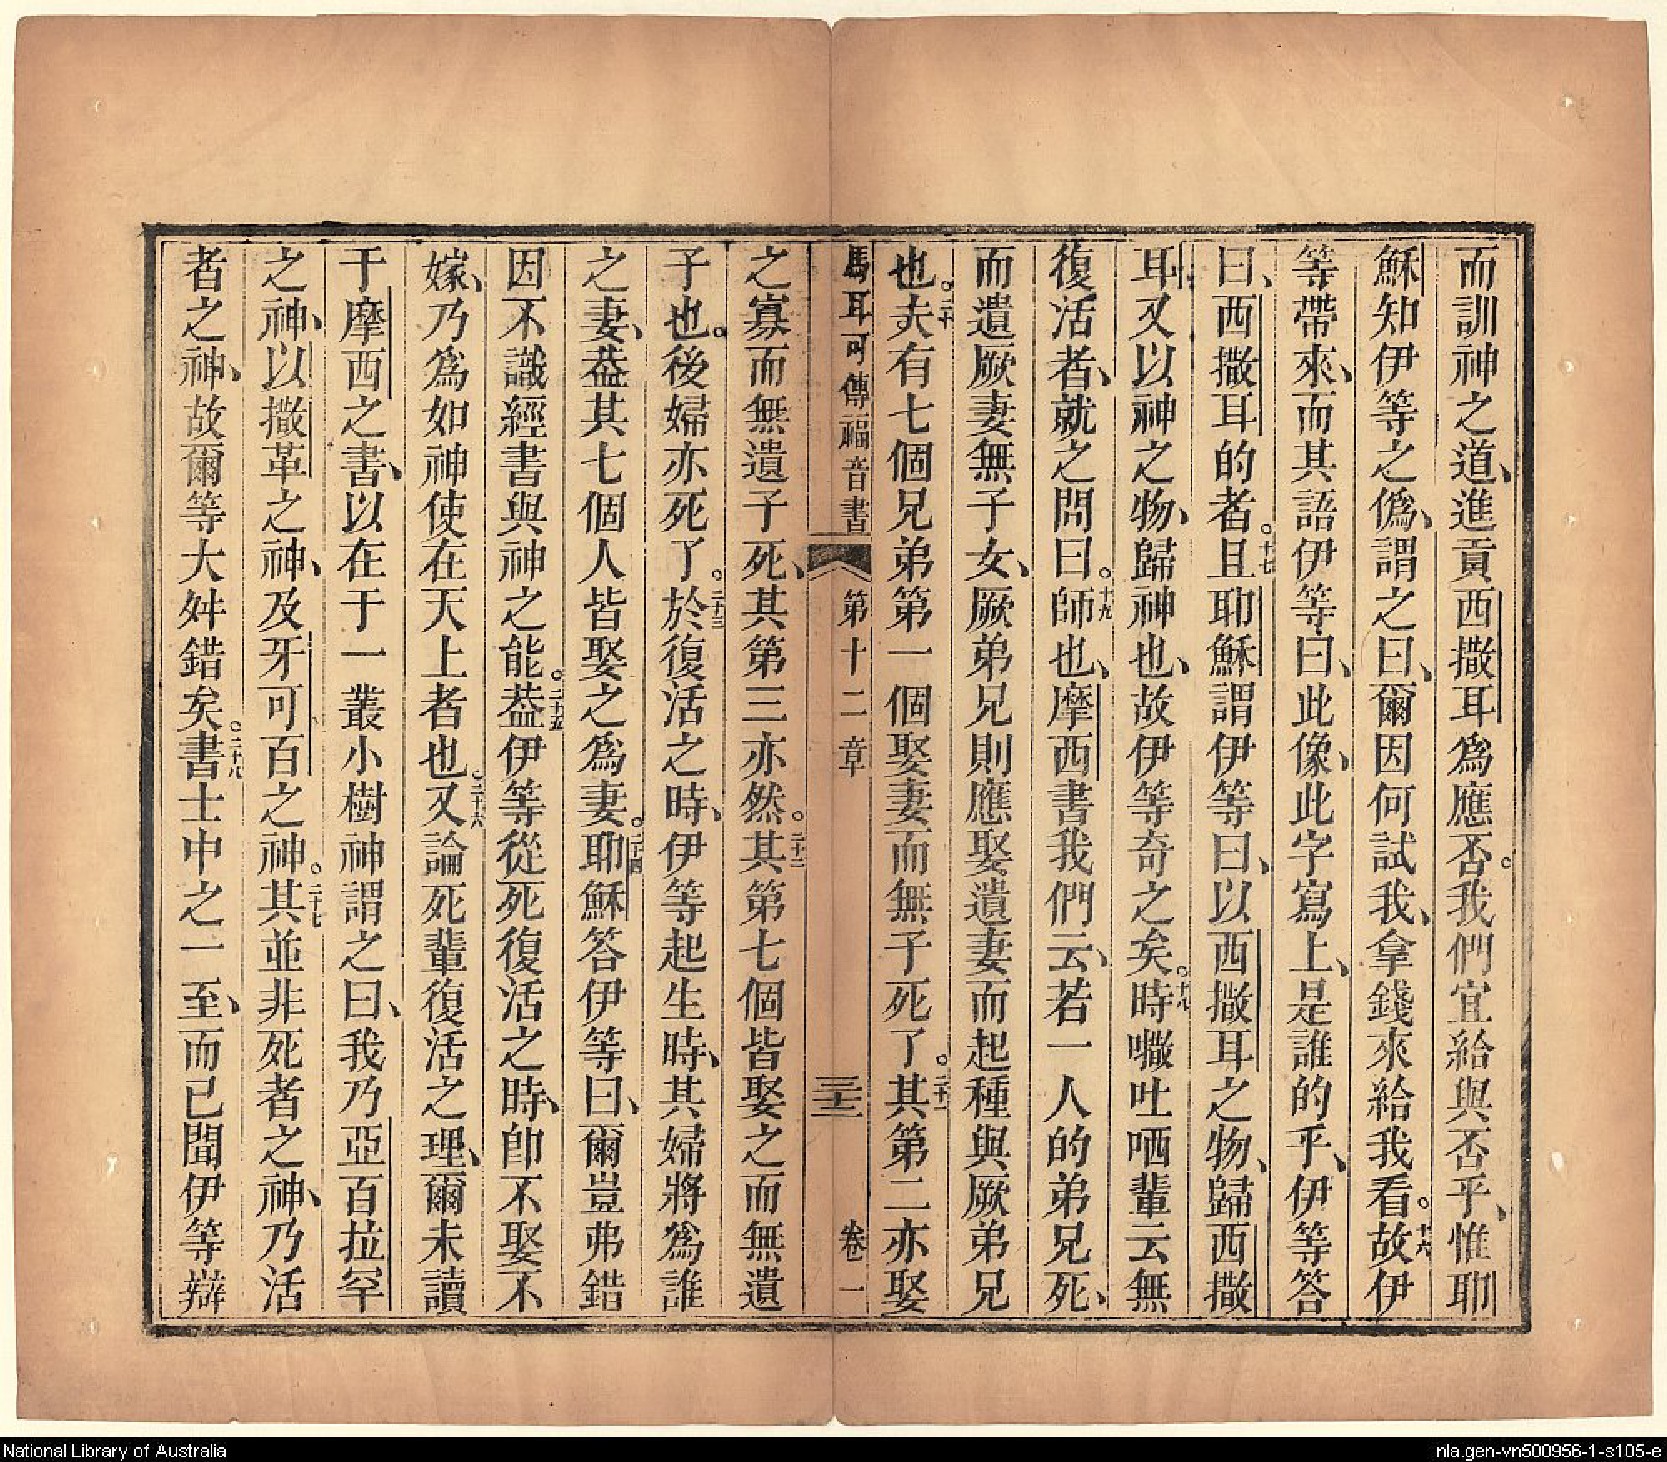 而訓神之道、進貢西撒耳爲應否。我們宜給與否乎、惟耶
穌知伊等之僞、謂之曰、爾因何試我、拿錢來給我看。十六故伊
等帶來、而其語伊等曰、此像、此字寫上、是誰的乎、伊等答
曰、西撒耳的者。十七且耶穌謂伊等曰、以西撒耳之物、歸西撒
耳、又以神之物、歸神也、故伊等奇之矣。十八時𡂡吐哂輩云無
復活者、就之問曰。十九師也、摩西書我們云、若一人的弟兄死、
而遺厥妻無子女、厥弟兄則應娶遺妻而起種與厥弟兄
也。二十夫有七個兄弟第一個娶妻而無子死了。二十一其第二亦娶
馬耳可傳福音書 第十二章 三十二 卷一
之寡而無遺子死、其第三亦然。二十二其第七個皆娶之而無遺
子也。後婦亦死了。二十三於復活之時、伊等起生時、其婦將爲誰
之妻、葢其七個人皆娶之爲妻。二十四耶穌答伊等曰、爾豈弗錯
因不識經書與神之能。二十五葢伊等從死復活之時、卽不娶不
嫁、乃爲如神使在天上者也。二十六又論死輩復活之理、爾未讀
于摩西之書、以在于一叢小樹神謂之曰、我乃亞百拉罕
之神、以撒革之神、及牙可百之神。二十七其並非死者之神、乃活
者之神、故爾等大舛錯矣。二十八書士中之一至、而已聞伊等辯
National Library of Australia
nla.gen-vn500956-1-s105-e